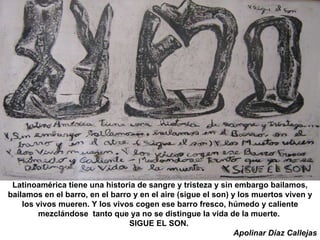 x sigue el son
Latino América tiene una historia de sangre y tristeza...
x Sin embargo bailamos... bailamos en el Barro en el
barro y en el aire (sigue el son) x los Muertos viven
x los Vivos mueren. x los vivos cogen ese barro fresco
Húmedo y caliente - Mezclandose tanto que ya no se
distingue la vida de la muerte. x SIGUE EL SON
Latinoamérica tiene una historia de sangre y tristeza y sin embargo bailamos,
bailamos en el barro, en el barro y en el aire (sigue el son) y los muertos viven y
los vivos mueren. Y los vivos cogen ese barro fresco, húmedo y caliente
mezclándose tanto que ya no se distingue la vida de la muerte.
SIGUE EL SON.
Apolinar Díaz Callejas